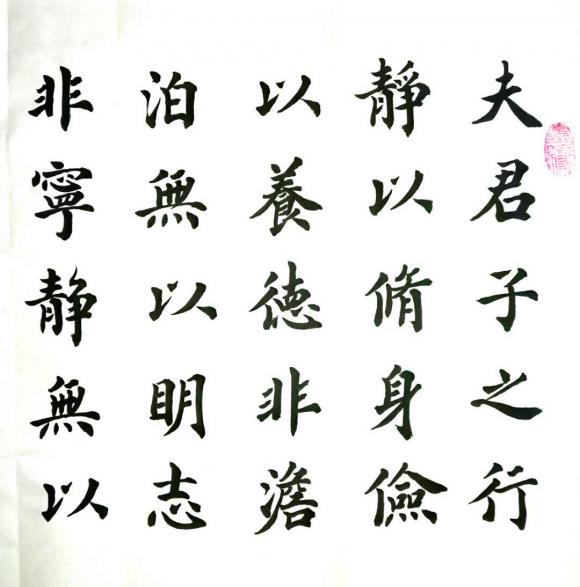 夫君子之行
靜以脩身儉
以養德非澹
泊無以明志
非寧静無以